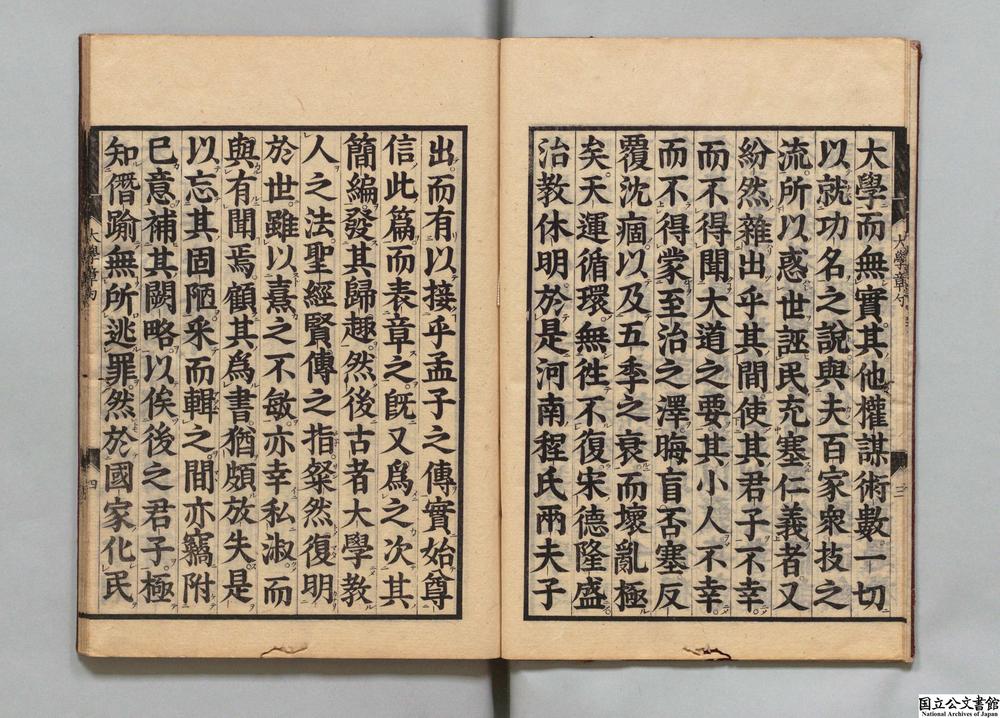 大學而無實其他權謀術數一切
以就功名之說與夫百家衆技之
流所以惑世誣民充塞仁義者又
紛然雜出乎其間使其君子不幸
而不得聞大道之要其小人不幸
而不得蒙至治之澤晦盲否塞反
覆沈痼以及五季之衰而壞亂極
矣天運循環無徃不復宋德隆盛
治教休明於是河南程氏兩夫子
大學章句
三
出而有以接乎孟子之傳實始尊
信此篇而表章之旣又爲之次其
簡編發其歸趣然後古者大學教
人之法聖經賢傳之指粲然復明
於世雖以熹之不敏亦幸私淑而
與有聞焉顧其爲書猶頗放失是
以忘其固陋釆而輯之間亦竊附
已意補其闕略以俟後之君子極
知僭踰無所逃罪然於國家化民
大學章句
四
国立公文書館
National Archives of Japan